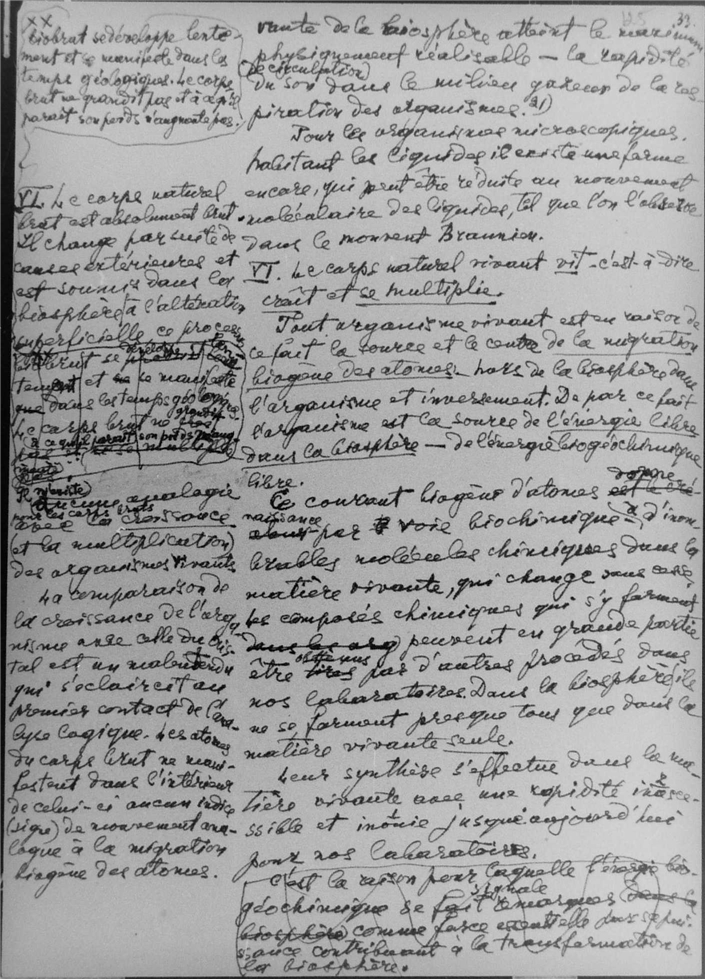 33.
x x
biobrut se développe lente-
ment et se manifeste dans les
temps géologiques. Le corps
brut ne grandit pas et à ce qu'il
parait son poids n'augmente pas.
VI. Le corps naturel
brut est absolument brut.
Il change par suite de
causes extérieures et
est soumis dans la
biosphère à l'altération
superficielle ce processus
biobrut se
tement et se manifeste
que dans les temps géologiques
Le corps brut ne
à ce qu'il parait son poids
Il n'existe
aucune analogie
avec la croissance
(et la multiplication)
des organismes vivants
La comparaison de
la croissance de l'orga-
nisme avec celle du cris-
tal est un malentendu
qui s'eclaircit au
premier contact de l'ana-
lyse logique. Les atomes
du corps brut ne mani-
festent dans l'intérieur
de celui-ci aucun indice
(signe) de mouvement ana-
logue à la migration
biogène des atomes.
vante de la biosphère atteint le maximum
physiquement réalisable — la rapidité
(de circulation)
du son dans le milieu gazeux de la res-
piration des organismes. 21)
Pour les organismes microscopiques,
habitant les liquides il existe une forme
encore, qui peut être réduite au mouvement
moléculaire des liquides, tel que l'on l'observe
dans le mouvent Braunien.
VI. Le corps naturel vivant vit - c'est-à-dire
croît et se multiplie.
Tout organisme vivant est en raison de
ce fait la source et le centre de la migration
biogène des atomes - hors de la biosphère dans
l'organisme et inversement. De par ce fait
l'organisme est la source de l'énergie libre
dans la biosphère — de l'énergie biogéochimique
libre.
Ce courant biogène d'atomes donne
naissance par voie biochimique - à d'inom-
brables molécules chimiques dans la
matière vivante, qui change sans cesse,
les composés chimiques qui s'y forment
peuvent en grande partie
être obtenus par d'autres procédés dans
nos laboratoires. Dans la biosphère ils
ne se forment presque tous que dans la
matière vivante seule.
Leur synthèse s'effectue dans la ma-
tière vivante avec une rapidité inacce-
ssible et inouie jusqu'aujourd'hui
pour nos laboratoires.
C'est la raison pour laquelle l'énergie bio-
géochimique se signale
comme force essentielle par sa puis-
sance contribuant à la transformation de
la biosphère.